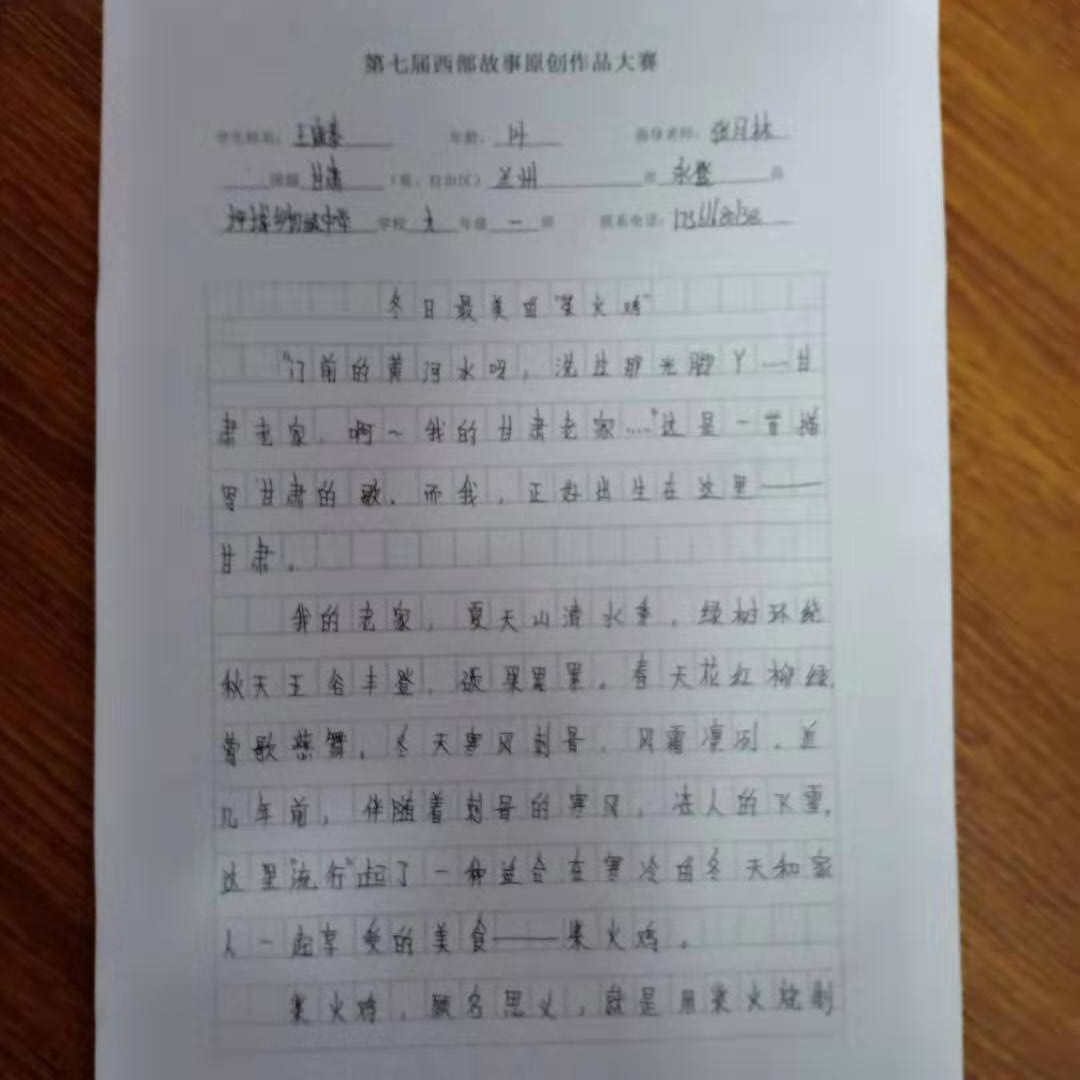 第七届西部故事原创作品大赛
学生姓名: 王 年龄: 14 指导老师: 张月林
国籍 甘肃 (省、自治区) 兰州 市 永登 县
坪城乡初级中学 学校 九 年级 一 班 联系电话:
冬日最美的"柴火鸡"
"门前的黄河水呀,洗过那光脚丫—甘
肃老家,啊~我的甘肃老家……"这是一首描
写甘肃的歌.而我,正好出生在这里——
甘肃.
我的老家,夏天山清水秀,绿树环绕
秋天五谷丰登,硕果累累.春天花红柳绿,
莺歌燕舞,冬天寒风刺骨,风霜凛冽.近
几年前,伴随着刺骨的寒风,冻人的飞雪,
这里"流行"起了一种适合在寒冷的冬天和家
人一起享受的美食——柴火鸡.
柴火鸡,顾名思义,就是用柴火烧制